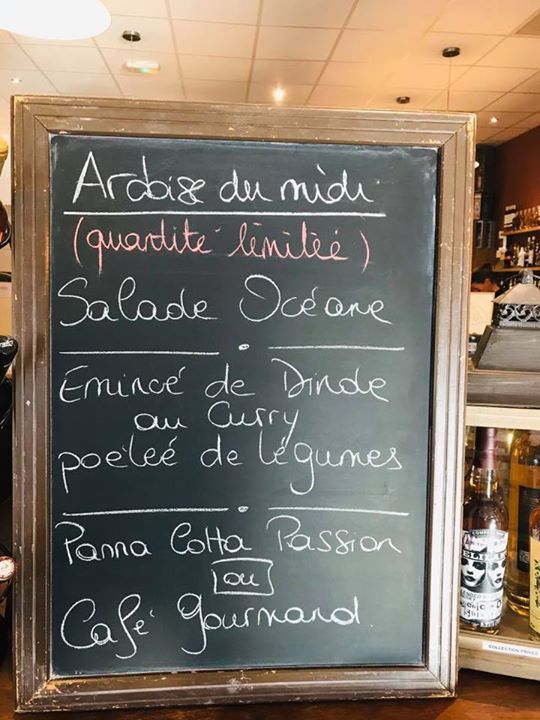 Ardoise du midi
(quantité limitée)
Salade Océane
Emincé de Dinde
au Curry
poêlée de légumes
Panna Cotta Passion
ou
Café Gourmand.
COLLECTION PRIVÉE